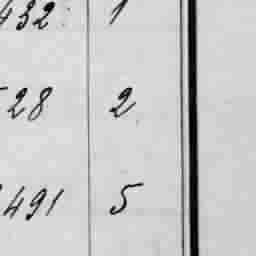 432 1
28 2
491 5